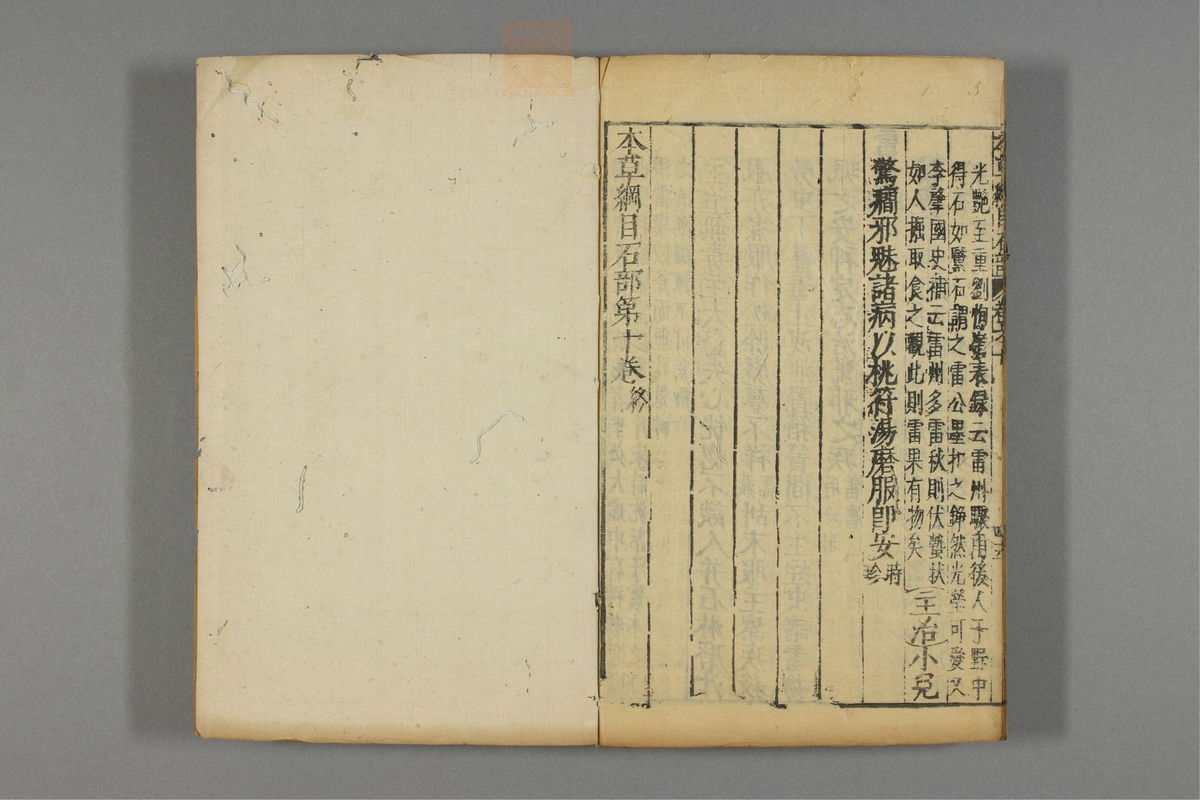 光艷至重劉恂嶺表錄云雷州驟雨後人于野中
得石如黳石謂之雷公墨扣之錚然光瑩可愛又
李肇國史補云雷州多雷秋則伏蟄狀
如人掘取食之觀此則雷果有物矣
主治小兒
驚癇邪魅諸病以桃符湯磨服即安時珍
本草綱目石部第十卷終